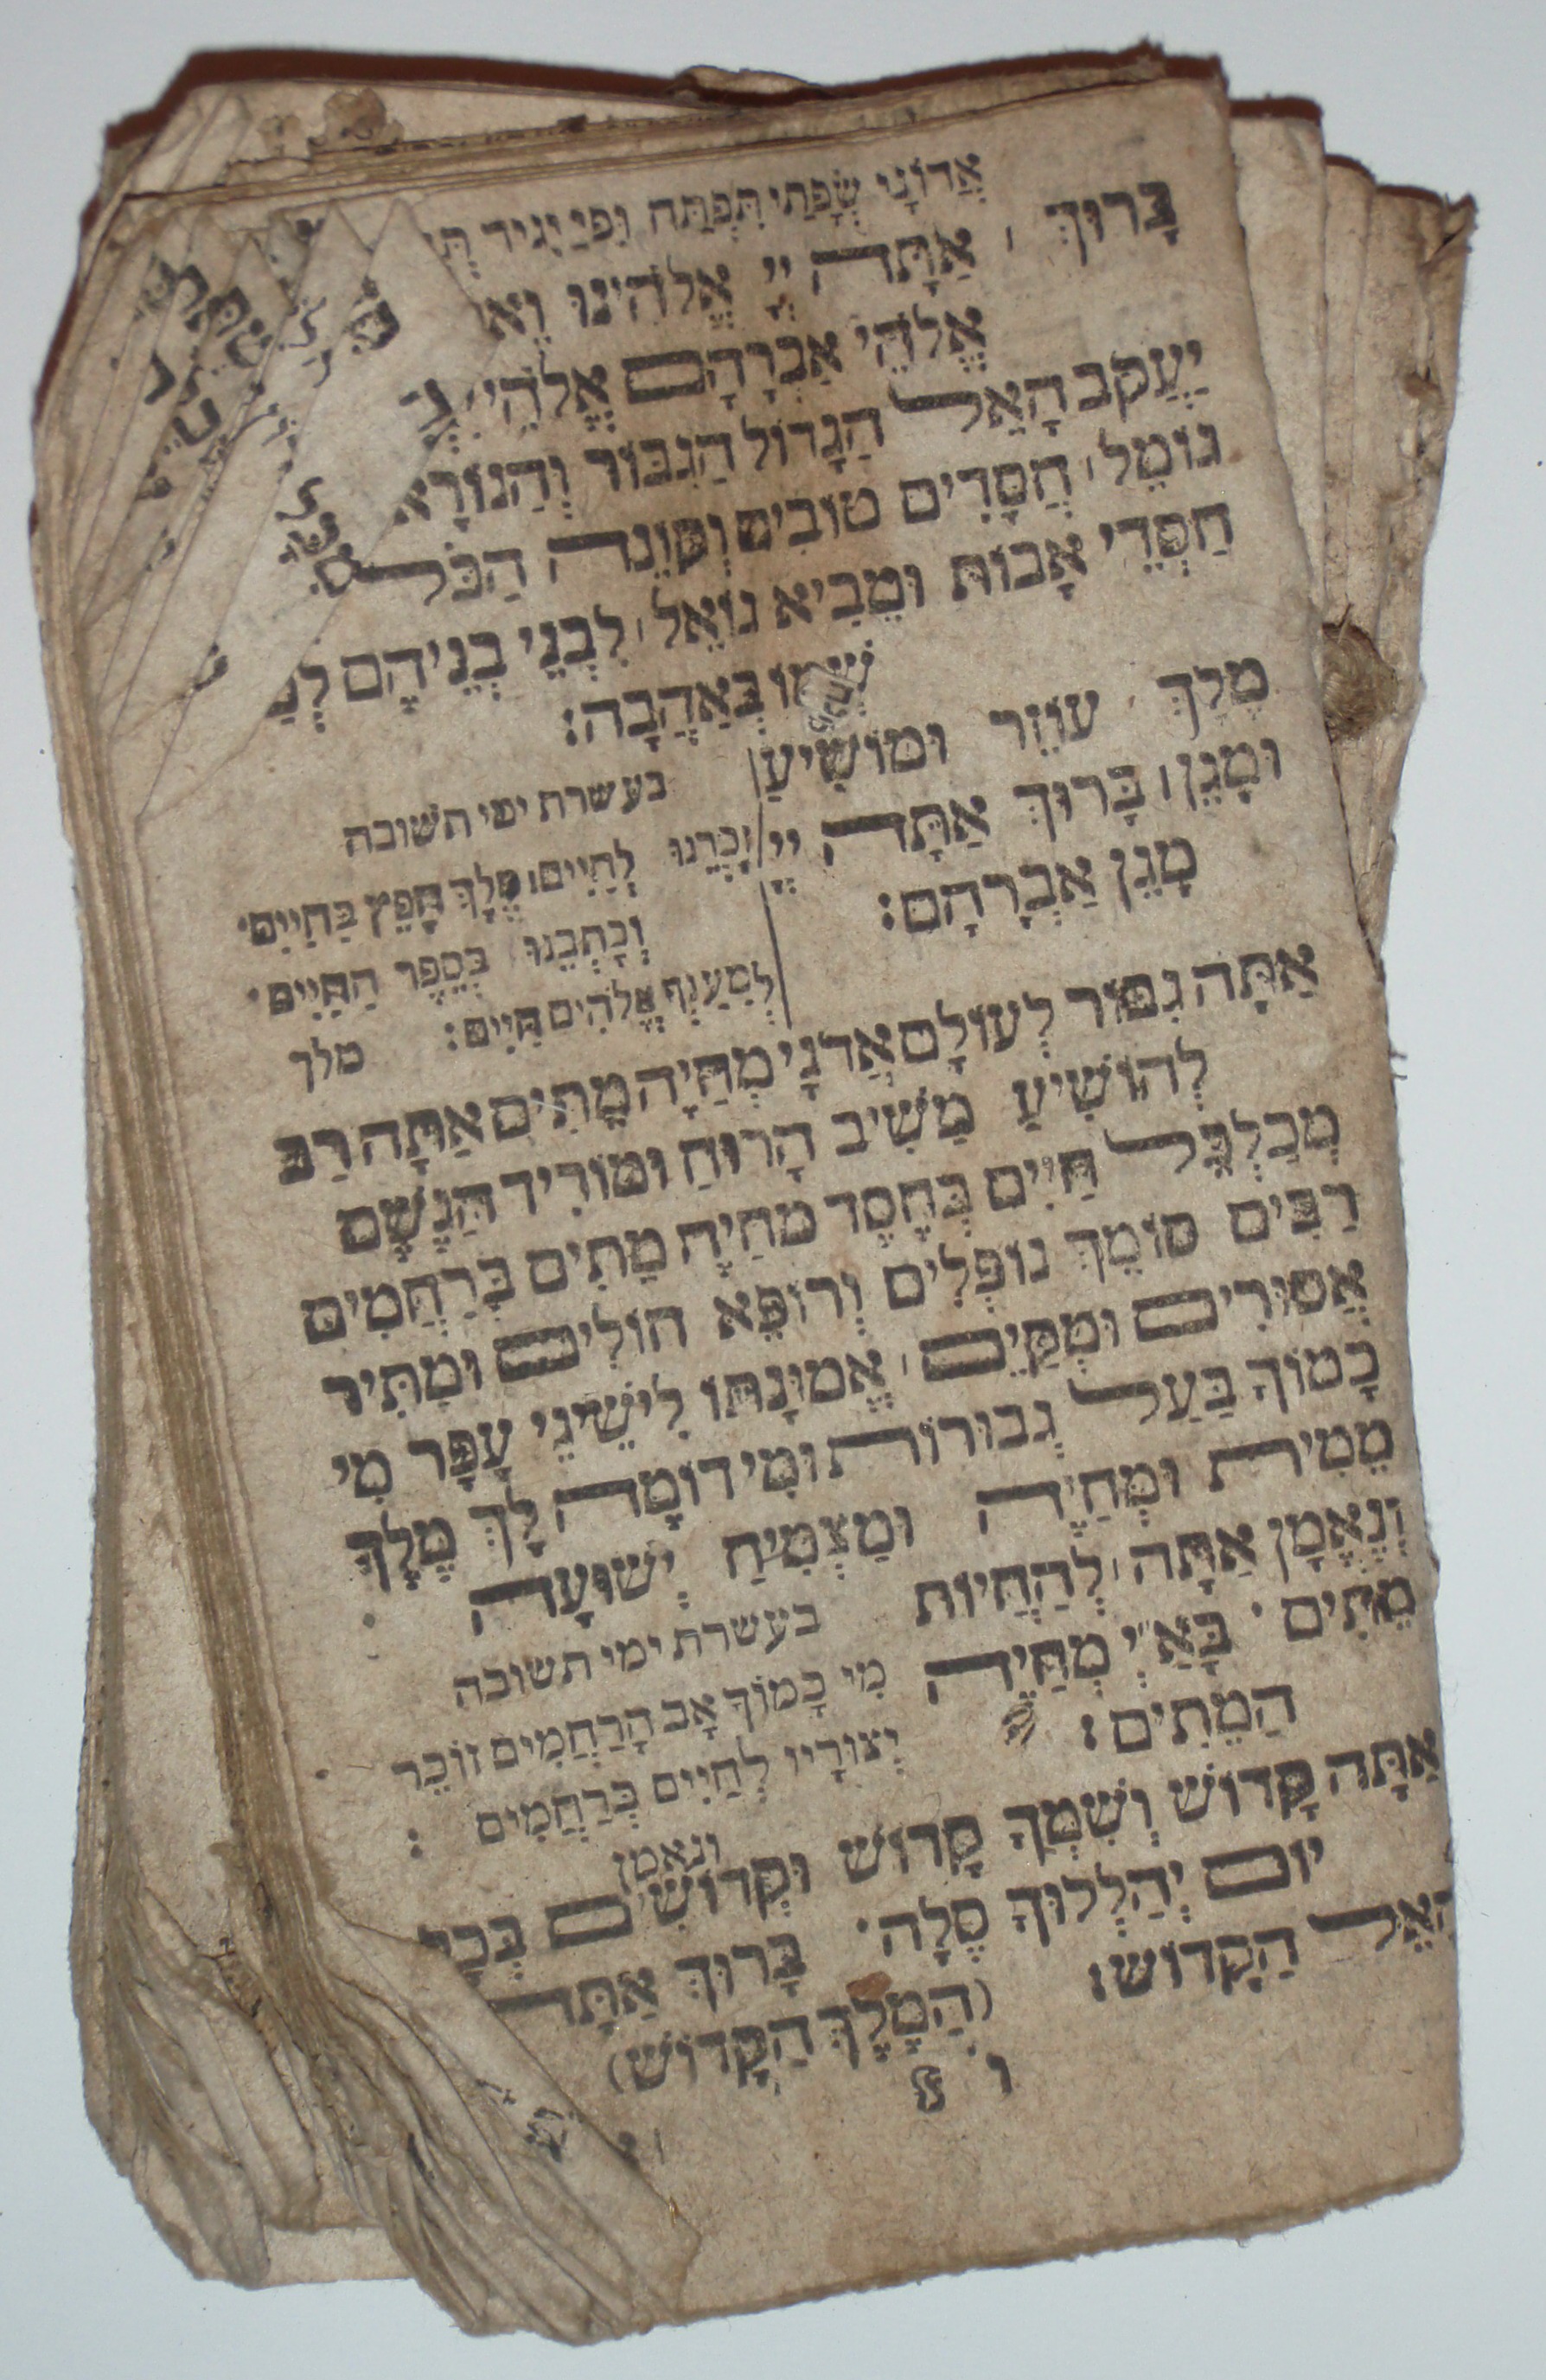 אֲדוֹנָי שְׂפָתַי תִּפְתַּח וּפִי יַגִיד
בָּרוּךְ אַתָּה יְיָ אֱלֹהֵינוּ
אֱלֹהֵי אַבְרָהָם אֱלֹהֵי
יַעֲקֹב הָאֵל הַגָדוֹל הַגִבּוֹר וְהַנוֹרָא
גוֹמֵל חֲסָדִים טוֹבִים וְקוֹנֵה הַכֹּל
חַסְדֵי אָבוֹת וּמֵבִיא גוֹאֵל לִבְנֵי בְנֵיהֶם
שְׁמוֹ בְּאַהֲבָה׃
מֶלֶךְ עוֹזֵר וּמוֹשִׁיעַ
וּמָגֵן בָּרוּךְ אַתָּה יְיָ
מָגֵן אַבְרָהָם׃
בעשרת ימי תשובה
זָכְרֵנוּ לְחַיִים מֶלֶךְ חָפֵץ בַּחַיִים
וְכָתְבֵנוּ בְּסֵפֶר הַחַיִים
לְמַעַנְךָ אֱלֹהִים חַיִים׃ מלך
אַתָּה גִבּוֹר לְעוֹלָם אֲדֹנָי מְחַיֶה מֵתִים אַתָּה רַב
לְהוֹשִׁיעַ מַשִׁיב הָרוּחַ וּמוֹרִיד הַגֶשֶׁם
מְכַלְכֵּל חַיִים בְּחֶסֶד מחַיֶה מֵתִים בְּרַחֲמִים
רַבִּים סוֹמֵךְ נוֹפְלִים וְרוֹפֵא חוֹלִים וּמַתִּיר
אֲסוּרִים וּמְקַיֵים אֱמוּנָתוֹ לִישֵׁינֵי עָפָר מִי
כָמוֹךָ בַּעַל גְבוּרוֹת וּמִי דוֹמֶה לָךְ מֶלֶךְ
מֵמִית וּמְחַיֶה וּמַצְמִיחַ יְשׁוּעָה
וְנֶאֱמָן אַתָּה לְהַחֲיוֹת
מֵתִים בָּאַ״יְ מְחַיֵה
הַמֵתִים׃
בעשרת ימי תשובה
מִי כָמוֹךָ אָב הָרַחֲמִים זוֹכֵר
יְצוּרָיו לְחַיִים בְּרַחֲמִים ׃
ונאמן
אַתָּה קָדוֹשׁ וְשִׁמְךָ קָדוֹשׁ וּקְדוֹשִׁים בְּכָל
יוֹם יְהַלְלוּךָ סֶלָה בָּרוּךְ אַתָּה
הָאֵל הַקָדוֹשׁ׃ (הַמֶלֶךְ הַקָדוֹשׁ)